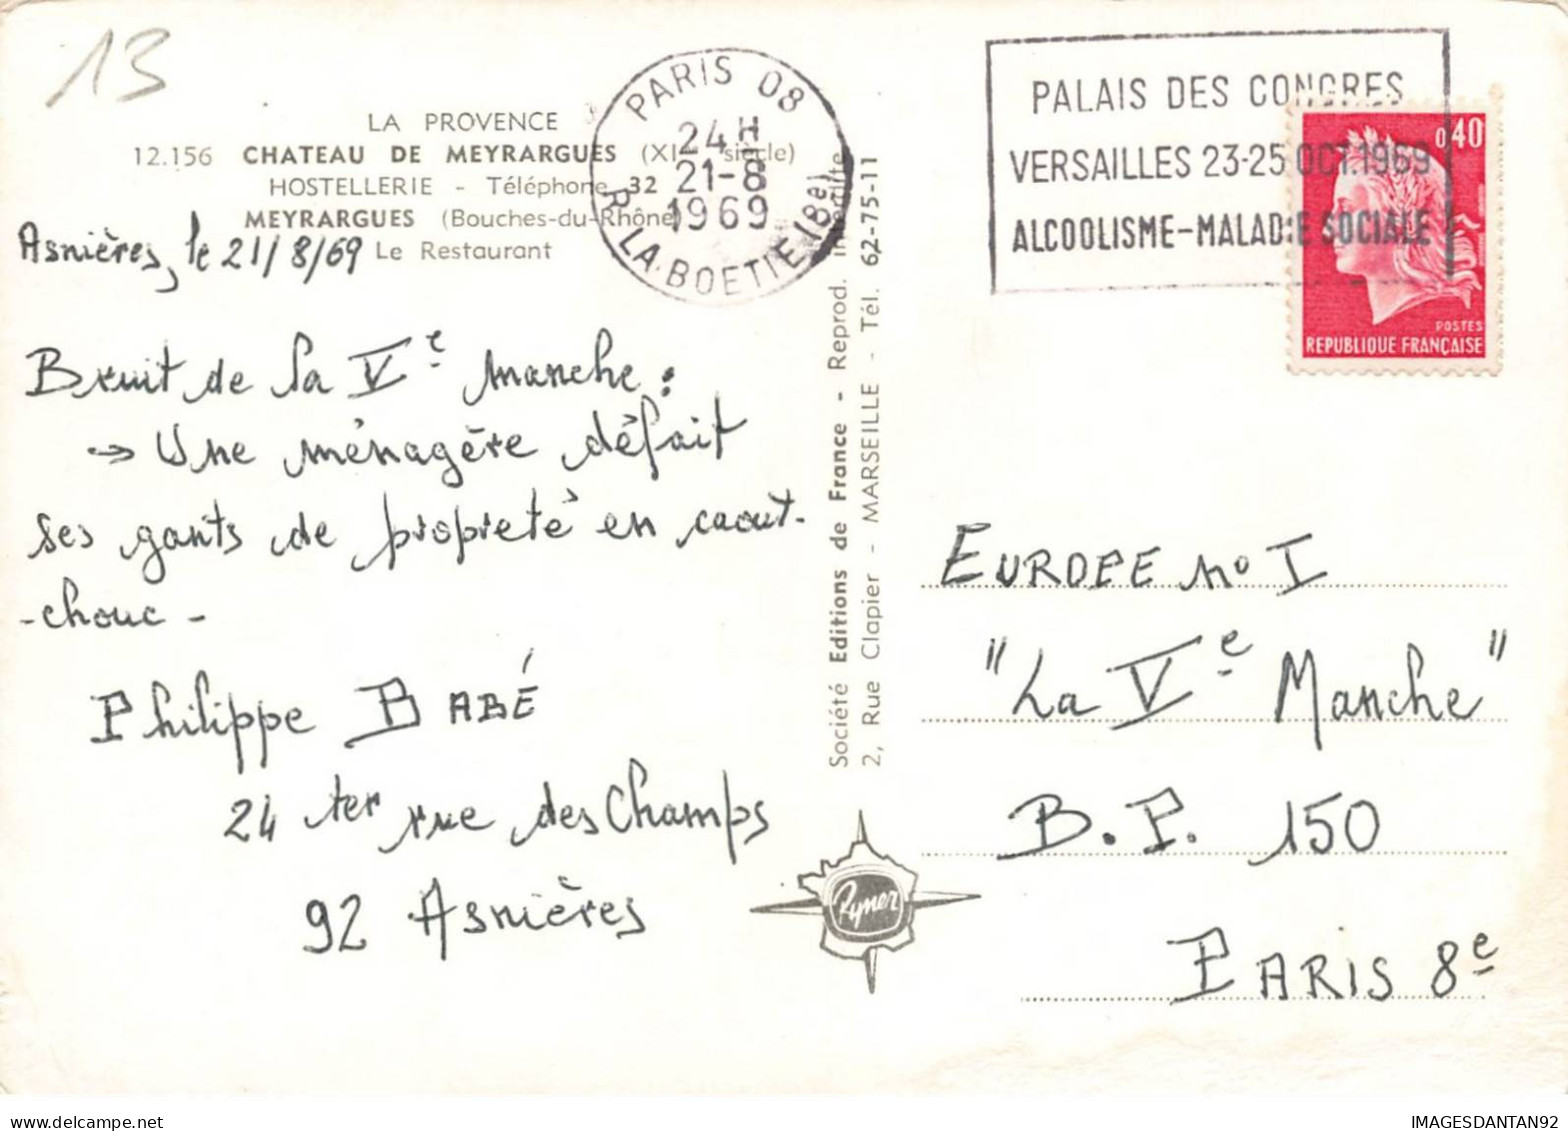 13
LA PROVENCE
12.156 CHATEAU DE MEYRARGUES (XIe siècle)
HOSTELLERIE - Téléphone 32
MEYRARGUES (Bouches-du-Rhône)
Le Restaurant
Asnières, le 21/8/69
Bruit de la Ve manche :
→ Une ménagère défait
ses gants de propreté en caout-
-chouc -
Philippe BABÉ
24 ter rue des Champs
92 Asnières
PARIS 08
24H
21-8
1969
R. LA-BOETIE (8e)
PALAIS DES CONGRES
VERSAILLES 23-25 OCT.1969
ALCOOLISME-MALADIE SOCIALE
0,40
POSTES
REPUBLIQUE FRANÇAISE
Société Editions de France - Reprod. interdite
2, Rue Clapier - MARSEILLE - Tél. 62-75-11
Ryner
EUROPE no I
"La Ve Manche"
B.P. 150
PARIS 8e
IMAGESDANTAN92